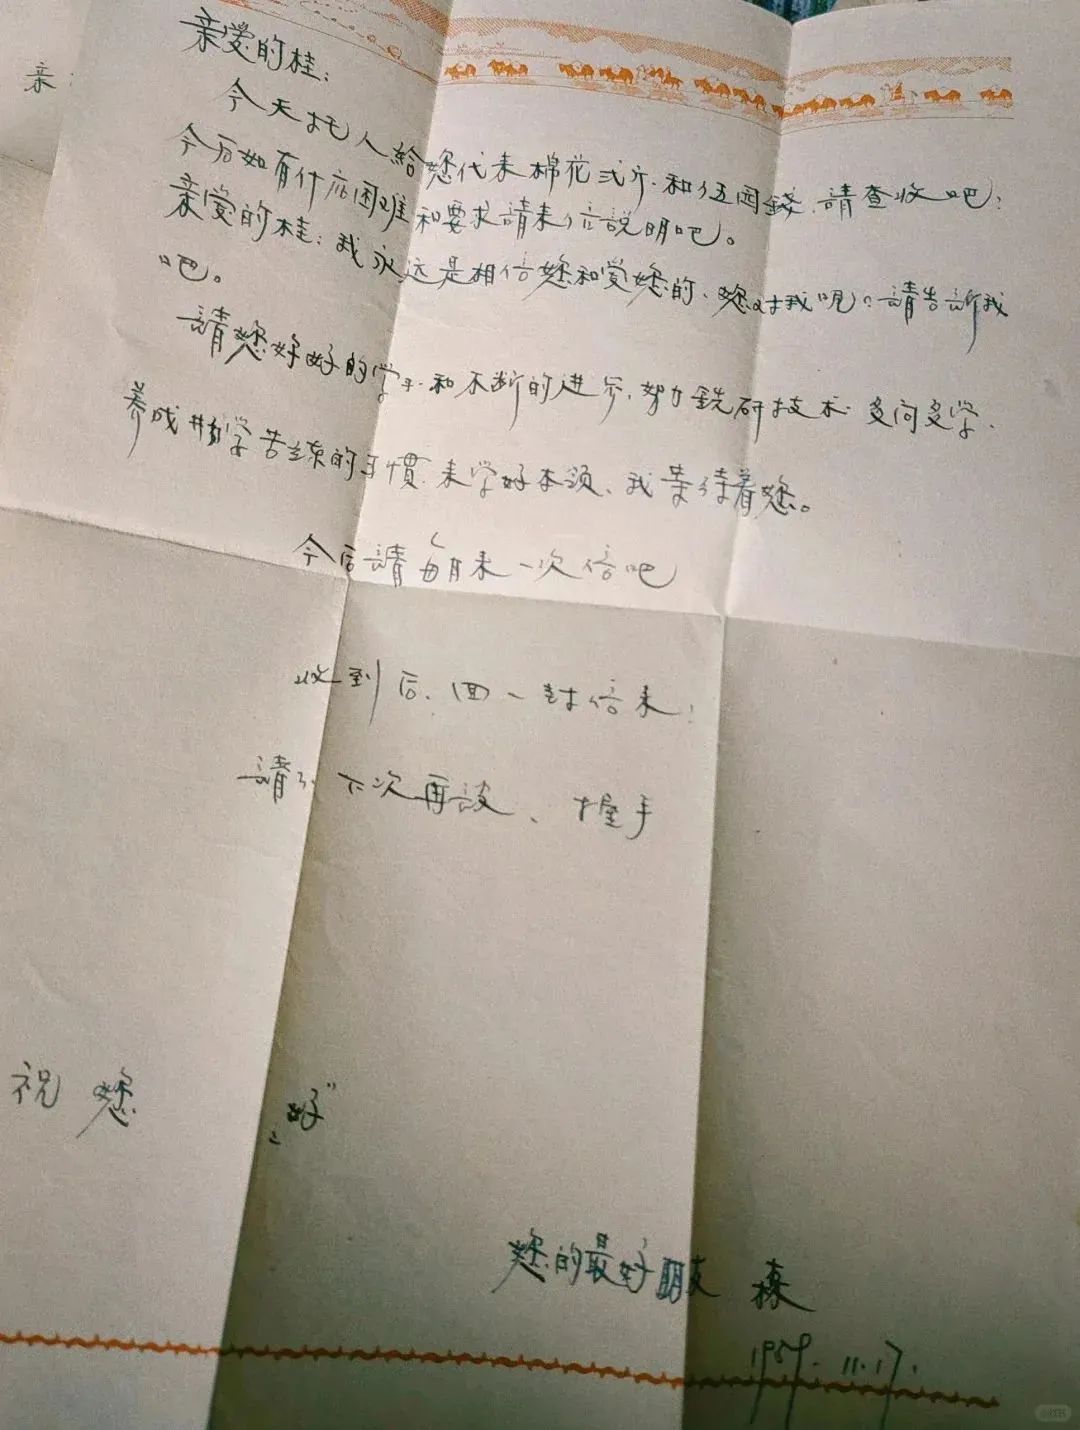 亲爱的桂：
今天托人给您代来棉花弍斤.和伍园錢、請查收吧！
今后如有什么困难和要求請来信説明吧。
亲爱的桂：我永远是相信您和爱您的、您对我呢？請告訴我
吧。
請您好好的学习.和不断的进步,努力鑽研技术.多问多学.
养成勤学苦练的习慣.来学好本领、我等待着您。
今后請每月来一次信吧
收到后、回一封信来！
請 下次再談、握手
祝 您
好
您的最好朋友 森
1959.11.17.
亲